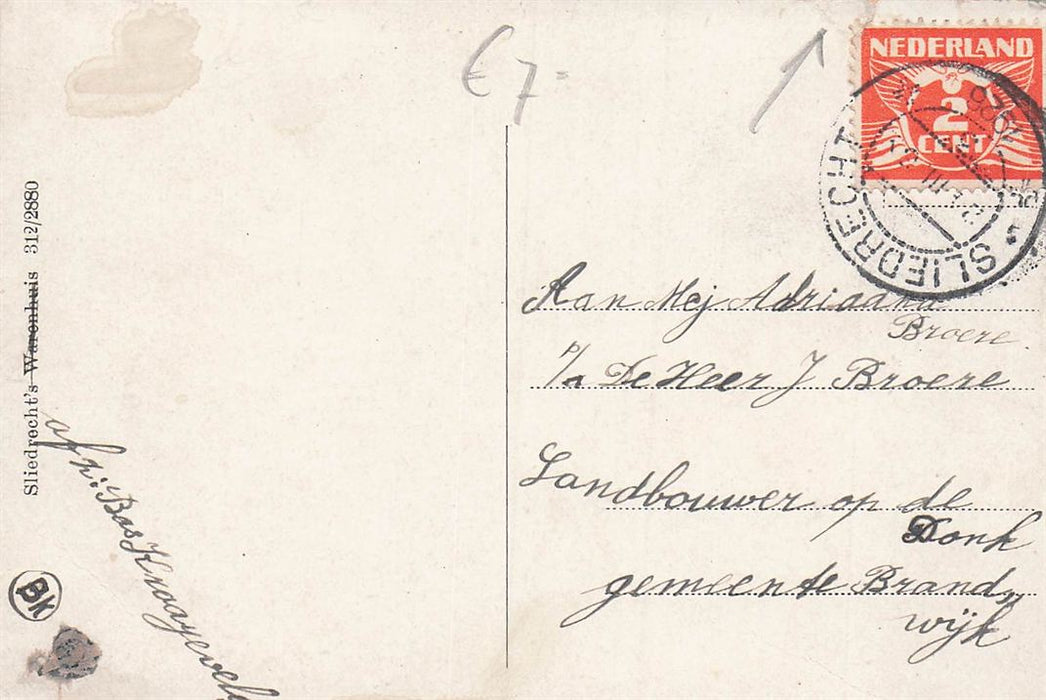 € 7=
NEDERLAND
2
CENT
SLIEDRECHT
Aan Mej Adriaana
Broere
p/a De Heer J Broere
Landbouwer op de
Donk
gemeente Brand„
wijk
Sliedrecht's Warenhuis 312/2880
afz: Bas Kraayeveld
BK